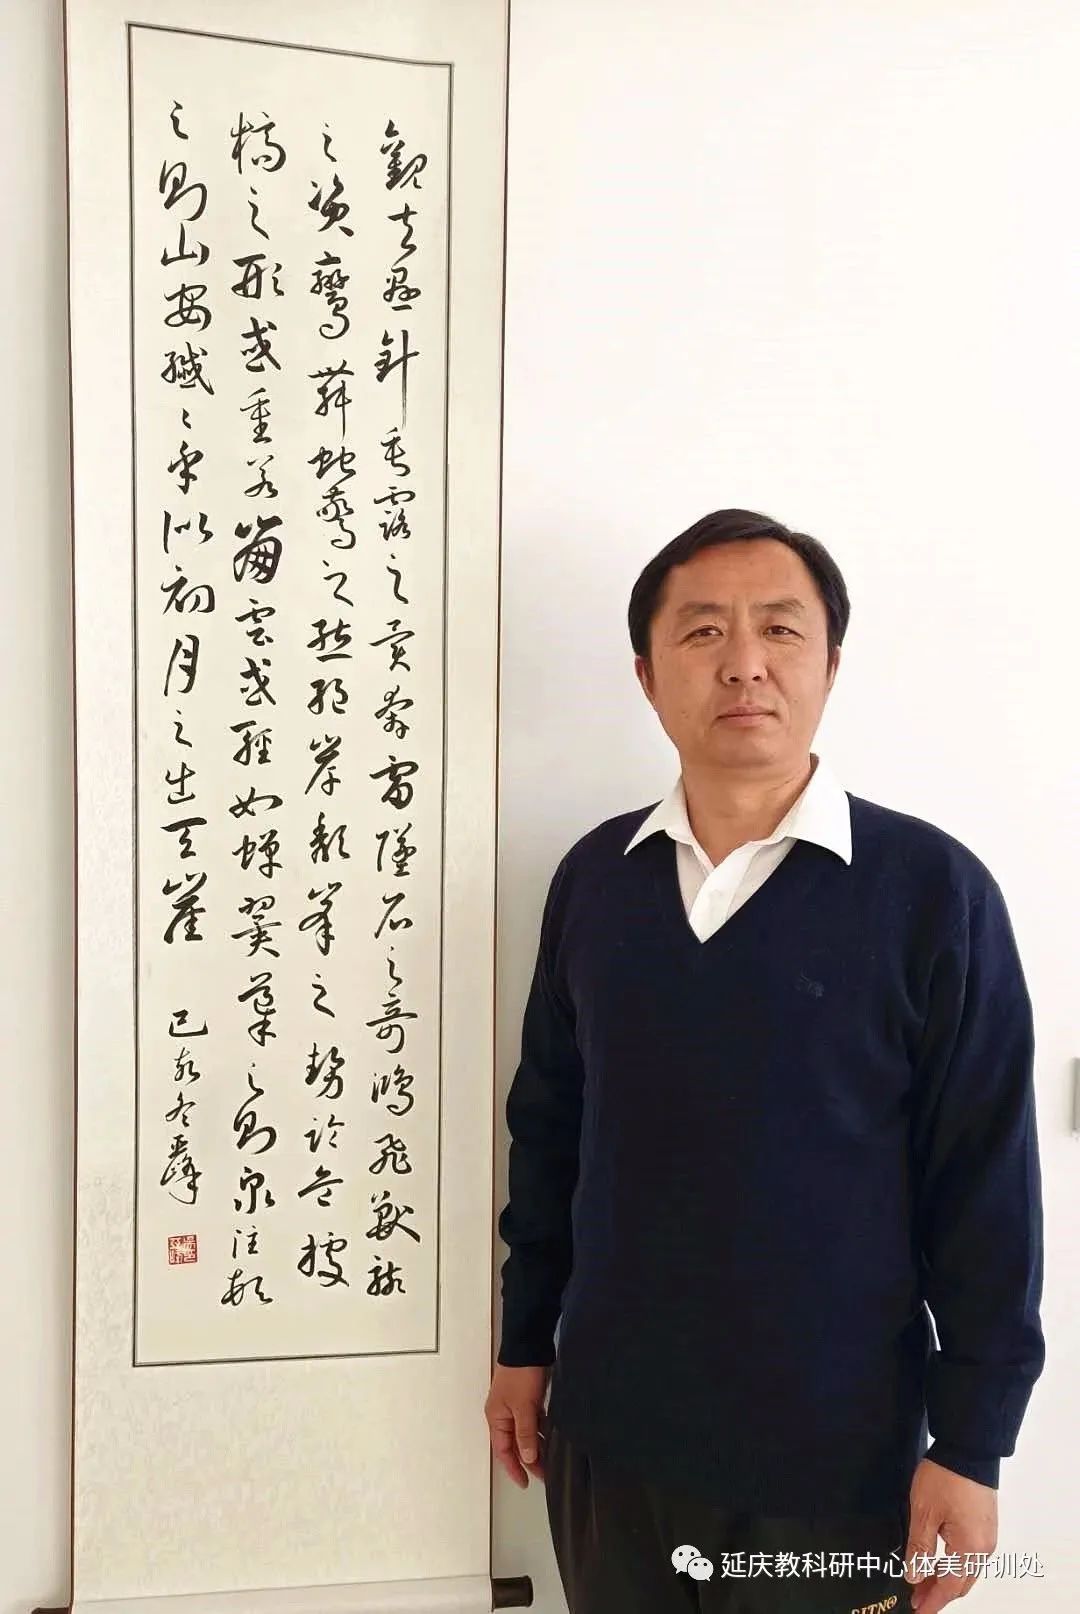 觀夫懸針垂露之異奔雷墜石之奇鴻飛獸駭
之資鸞舞蛇驚之態絕岸頹峯之勢臨危據
槁之形或重若崩雲或輕如蟬翼導之則泉注頓
之則山安纖々乎似初月之出天崖 己亥冬峰
延庆教科研中心体美研训处